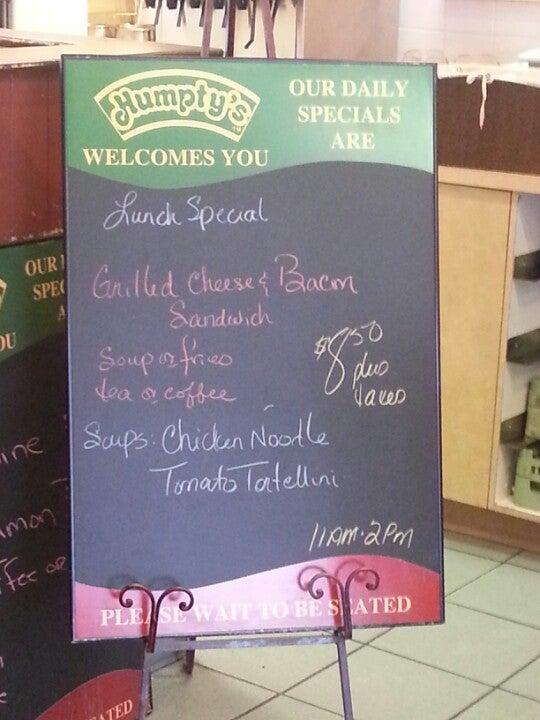 Humpty's
WELCOMES YOU
OUR DAILY
SPECIALS
ARE
Lunch Special
Grilled Cheese & Bacon
Sandwich
Soup or fries
tea or coffee
$8.50
plus
taxes
Soups: Chicken Noodle
Tomato Tortellini
11AM-2PM
PLEASE WAIT TO BE SEATED
OUR
SPEC
OU
ine
mon
fee or
ATED